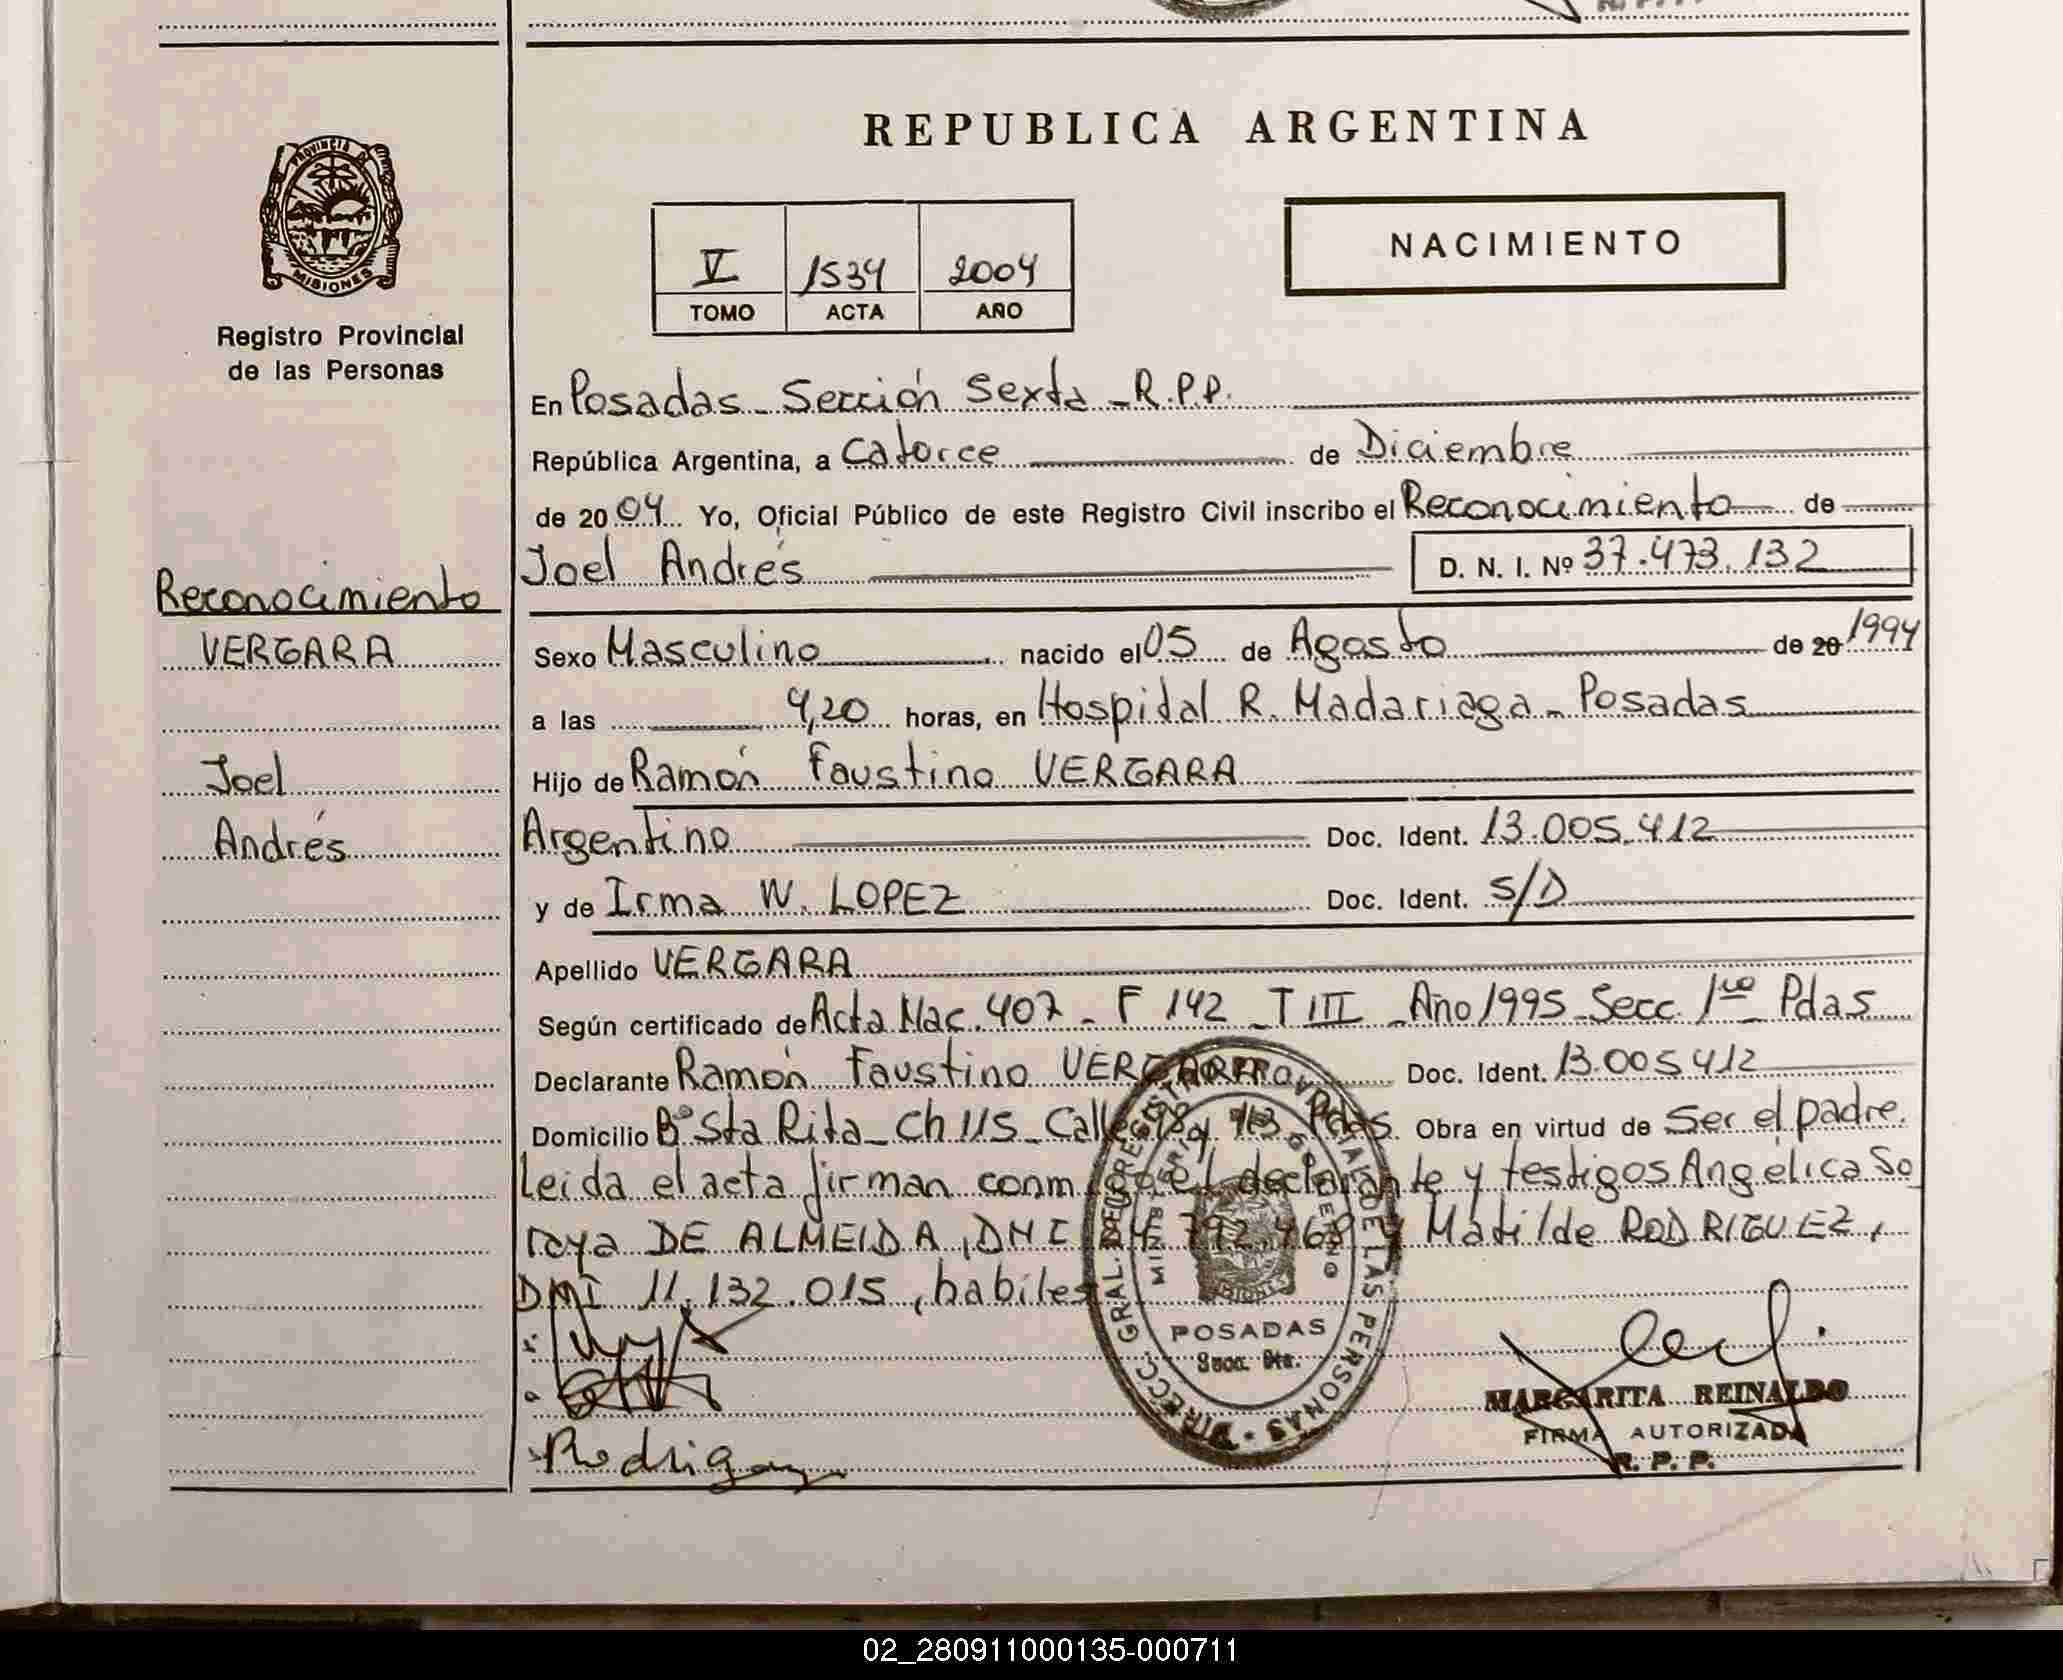 REPUBLICA ARGENTINA
PROVINCIA DE
MISIONES
Registro Provincial
de las Personas
V 1534 2004
TOMO ACTA AÑO
NACIMIENTO
En Posadas - Sección Sexta - R.P.P.
República Argentina, a Catorce de Diciembre
de 2004 Yo, Oficial Público de este Registro Civil inscribo el Reconocimiento de
Joel Andrés D. N. I. Nº 37.473.132
Reconocimiento
VERGARA
Joel
Andrés
Sexo Masculino nacido el 05 de Agosto de 20 1994
a las 4,20 horas, en Hospital R. Madariaga - Posadas
Hijo de Ramón Faustino VERGARA
Argentino Doc. Ident. 13.005.412
y de Irma W. LOPEZ Doc. Ident. S/D
Apellido VERGARA
Según certificado de Acta Nac. 407 - F 142 - T III - Año 1995 - Secc. 1ra - Pdas
Declarante Ramón Faustino VERGARA Doc. Ident. 13.005.412
Domicilio Bº Sta Rita - Ch 115 - Calle y Pdas. Obra en virtud de ser el padre.
Leida el acta firman conmigo el declarante y testigos Angélica So
raya DE ALMEIDA, DNI 792.468 y Matilde RODRIGUEZ,
DNI 11.132.015, habiles
DIRECC. GRAL. DEL REGISTRO PROVINCIAL DE LAS PERSONAS
MINISTERIO DE GOBIERNO
POSADAS
Secc. 6ta.
MARGARITA REINALDO
FIRMA AUTORIZADA
R. P. P.
02_280911000135-000711